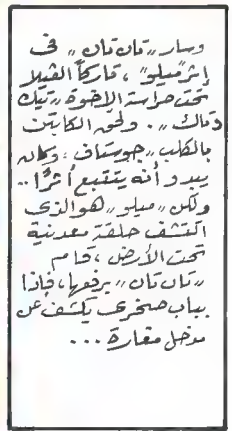 وسار "تان تان" فى
إثر "ميلو"، تاركاً الڤيلا
تحت حراسة الإخوة "تيك
وتاك". ولحق الكابتن
بالكلب "جوستاف": وكان
يبدو أنه يتتبع أثرًا..
ولكن "ميلو" هو الذى
اكتشف حلقة معدنية
تحت الأرض، قام
"تان تان" يرفعها، فإذا
بباب صخرى يكشف عن
مدخل مغارة...